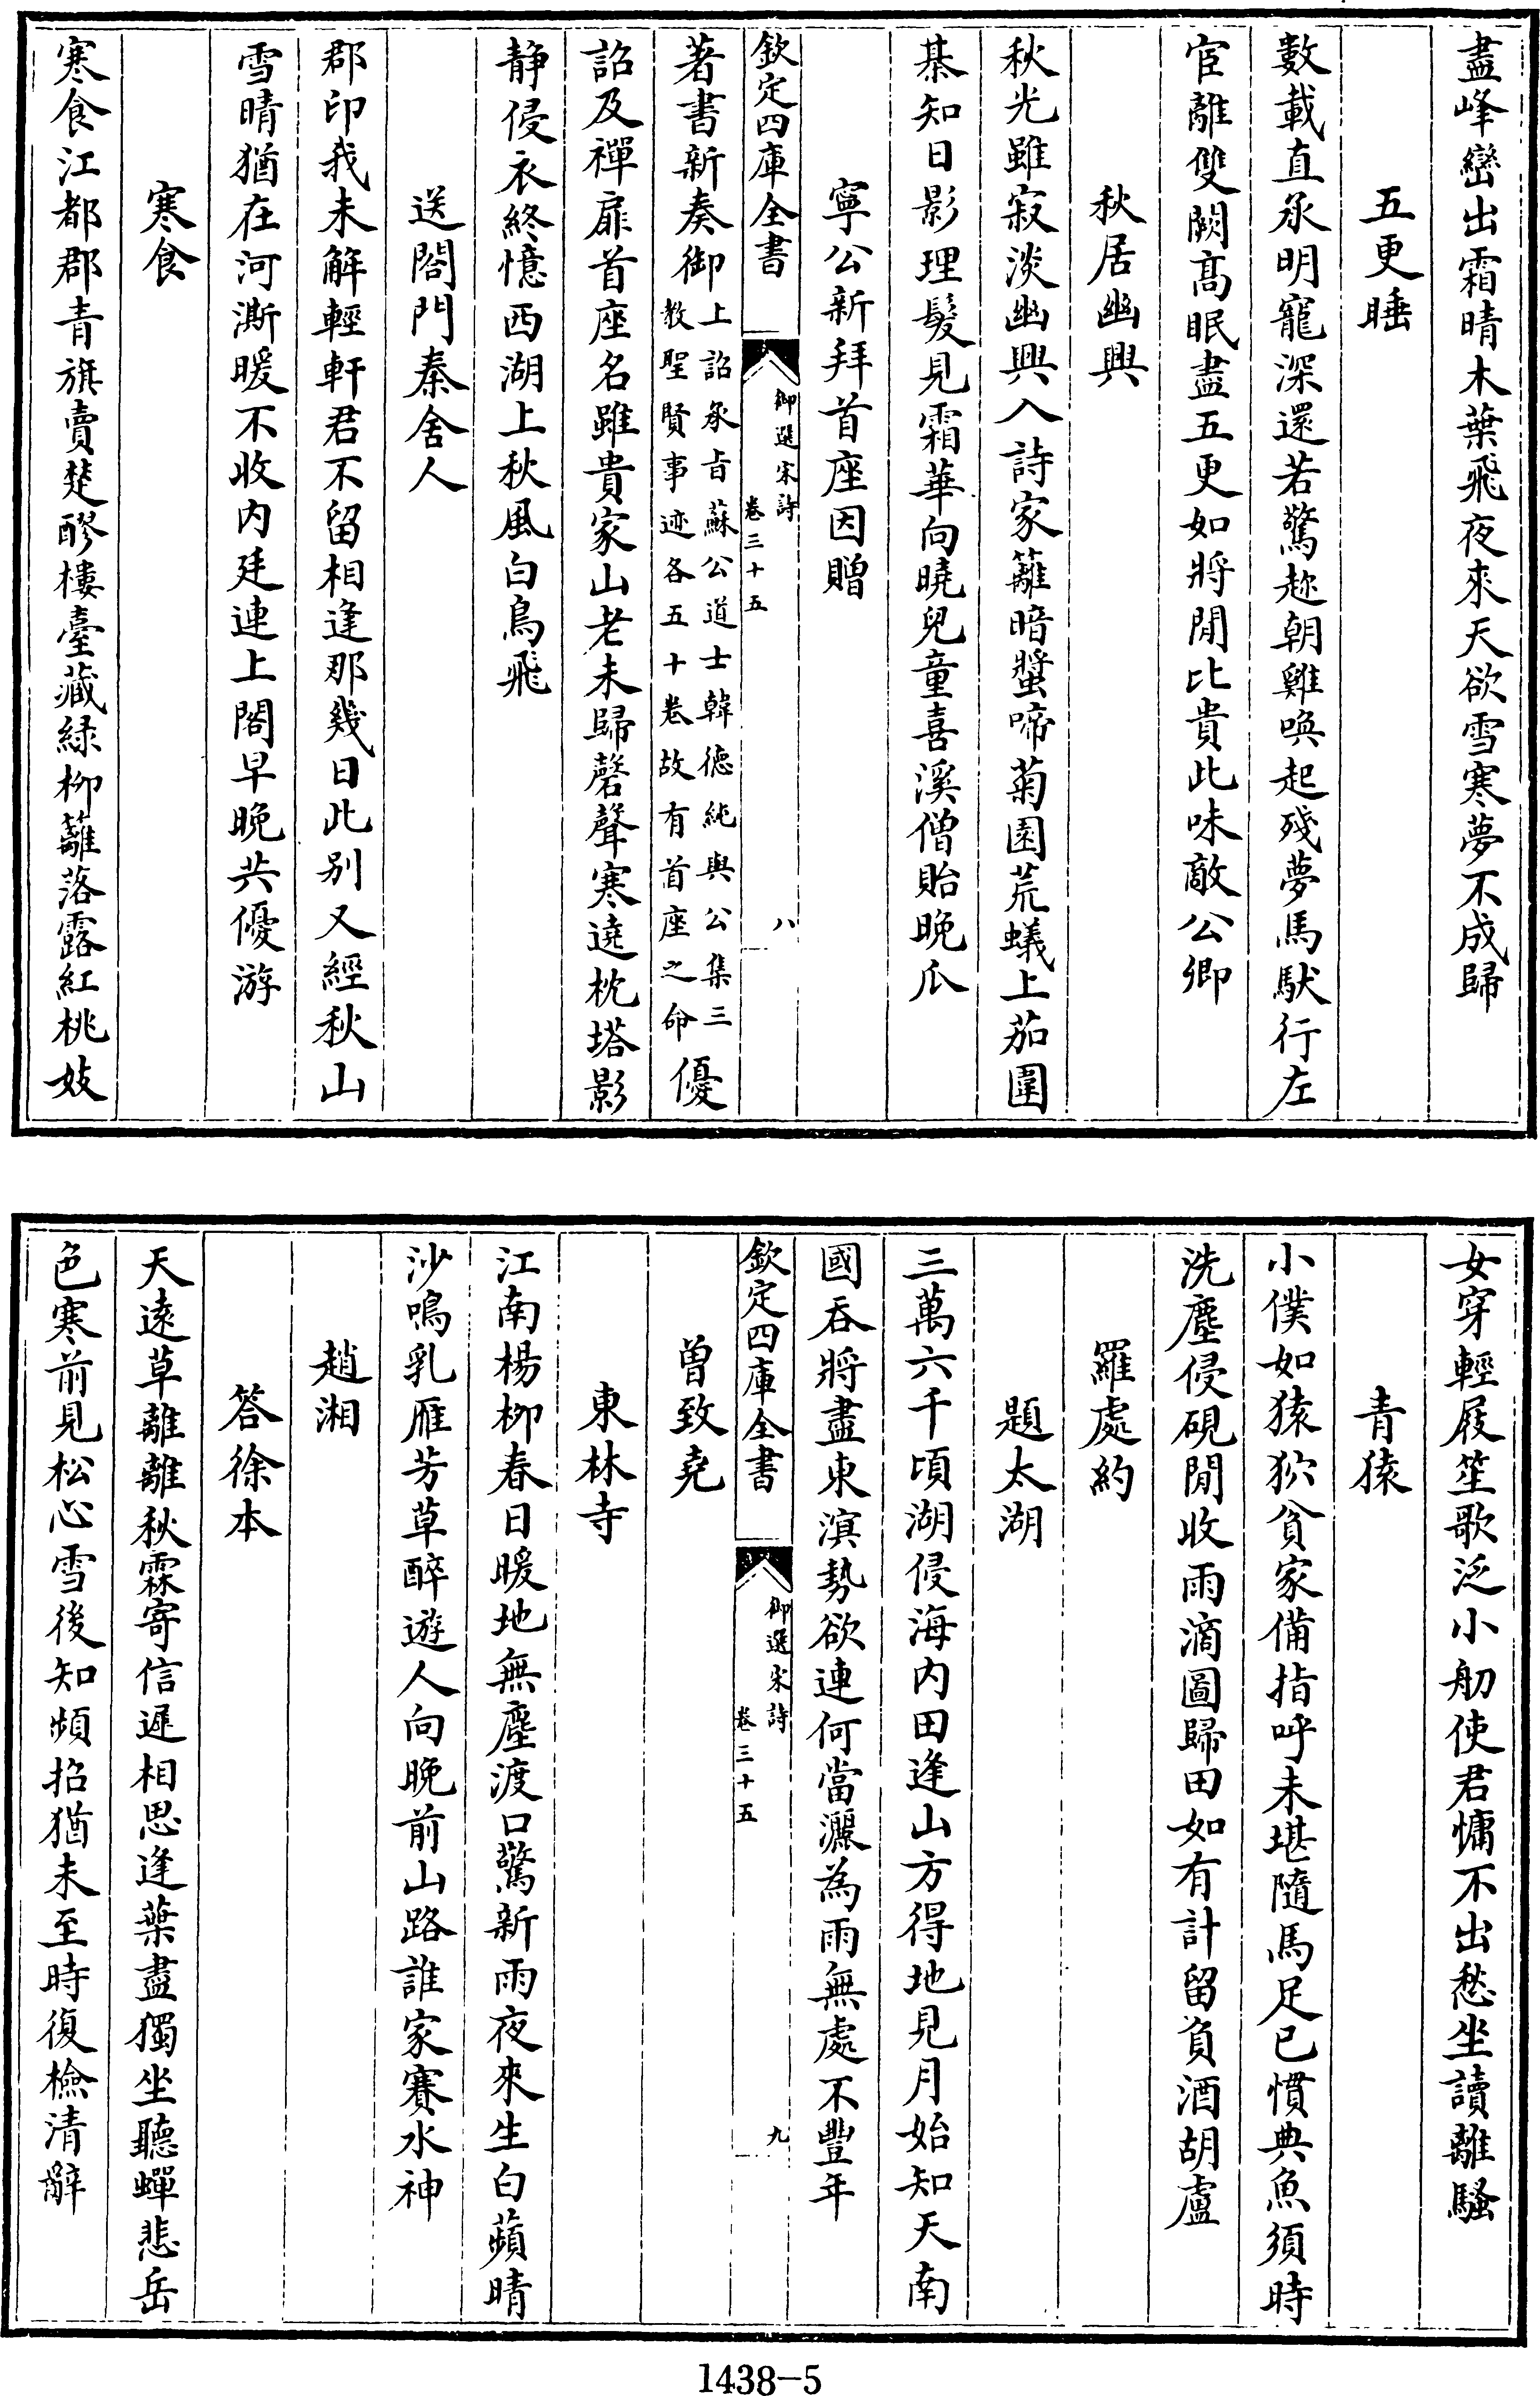 盡峰巒出霜晴木葉飛夜來天欲雪寒夢不成歸
五更睡
數載直承明寵深還若驚趂朝雞喚起殘夢馬馱行左
宦離雙闕髙眠盡五更如將閒比貴此味敵公卿
秋居幽興
秋光雖寂淡幽興入詩家籬暗蛩啼菊園荒蟻上茄圍
棊知日影理髮見霜華向曉兒童喜溪僧貽晚瓜
寧公新拜首座因贈
欽定四庫全書
御選宋詩
卷三十五
八
著書新奏御上詔承旨蘇公道士韓德純與公集三
教聖賢事迹各五十卷故有首座之命優
詔及禪扉首座名雖貴家山老未歸磬聲寒遶枕塔影
静侵衣終憶西湖上秋風白鳥飛
送閤門秦舍人
郡印我未解輕軒君不留相逢那幾日此别又經秋山
雪晴猶在河澌暖不收内廷連上閤早晚共優游
寒食
寒食江都郡青旗賣楚醪樓臺藏緑柳籬落露紅桃妓
女穿輕屐笙歌泛小舠使君慵不出愁坐讀離騷
青猿
小僕如猿狖貧家備指呼未堪隨馬足已慣典魚須時
洗塵侵硯閒收雨滴圖歸田如有計留負酒胡盧
羅處約
題太湖
三萬六千頃湖侵海内田逢山方得地見月始知天南
國吞將盡東溟勢欲連何當灑為雨無處不豐年
欽定四庫全書
御選宋詩
卷三十五
九
曾致堯
東林寺
江南楊柳春日暖地無塵渡口驚新雨夜來生白蘋晴
沙鳴乳雁芳草醉遊人向晚前山路誰家賽水神
趙湘
答徐本
天遠草離離秋霖寄信遲相思逢葉盡獨坐聽蟬悲岳
色寒前見松心雪後知頻招猶未至時復檢清辭
1438—5